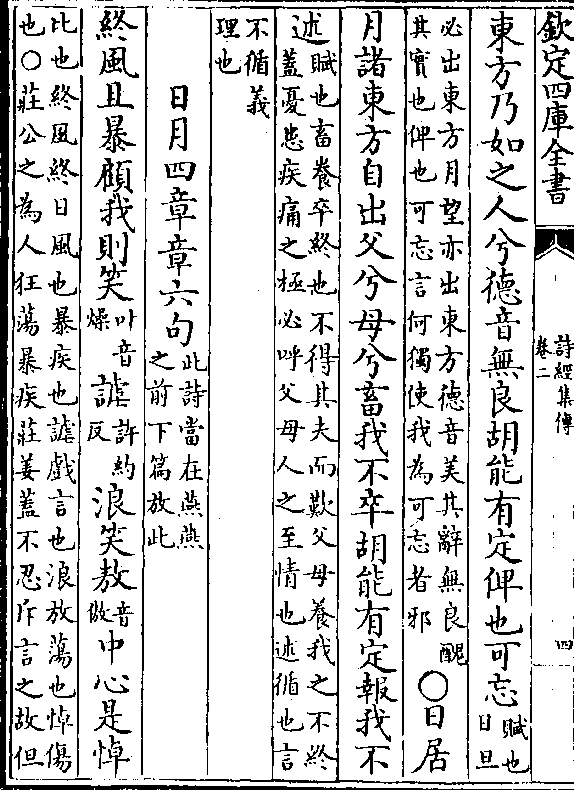 欽定四庫全書
詩經集傳
卷二
四
東方乃如之人兮德音無良胡能有定俾也可忘賦也
日旦
必出東方月望亦出東方德音美其辭無良醜
其實也俾也可忘言何獨使我為可忘者邪
○日居
月諸東方自出父兮母兮畜我不卒胡能有定報我不
述賦也畜養卒終也不得其夫而歎父母養我之不終
蓋憂患疾痛之極必呼父母人之至情也述循也言
不循義
理也
日月四章章六句此詩當在燕燕
之前下篇放此
終風且暴顧我則笑叶音
燥
謔許約
反
浪笑敖音
傲
中心是悼
比也終風終日風也暴疾也謔戲言也浪放蕩也悼傷
也○莊公之為人狂蕩暴疾莊姜蓋不忍斥言之故但